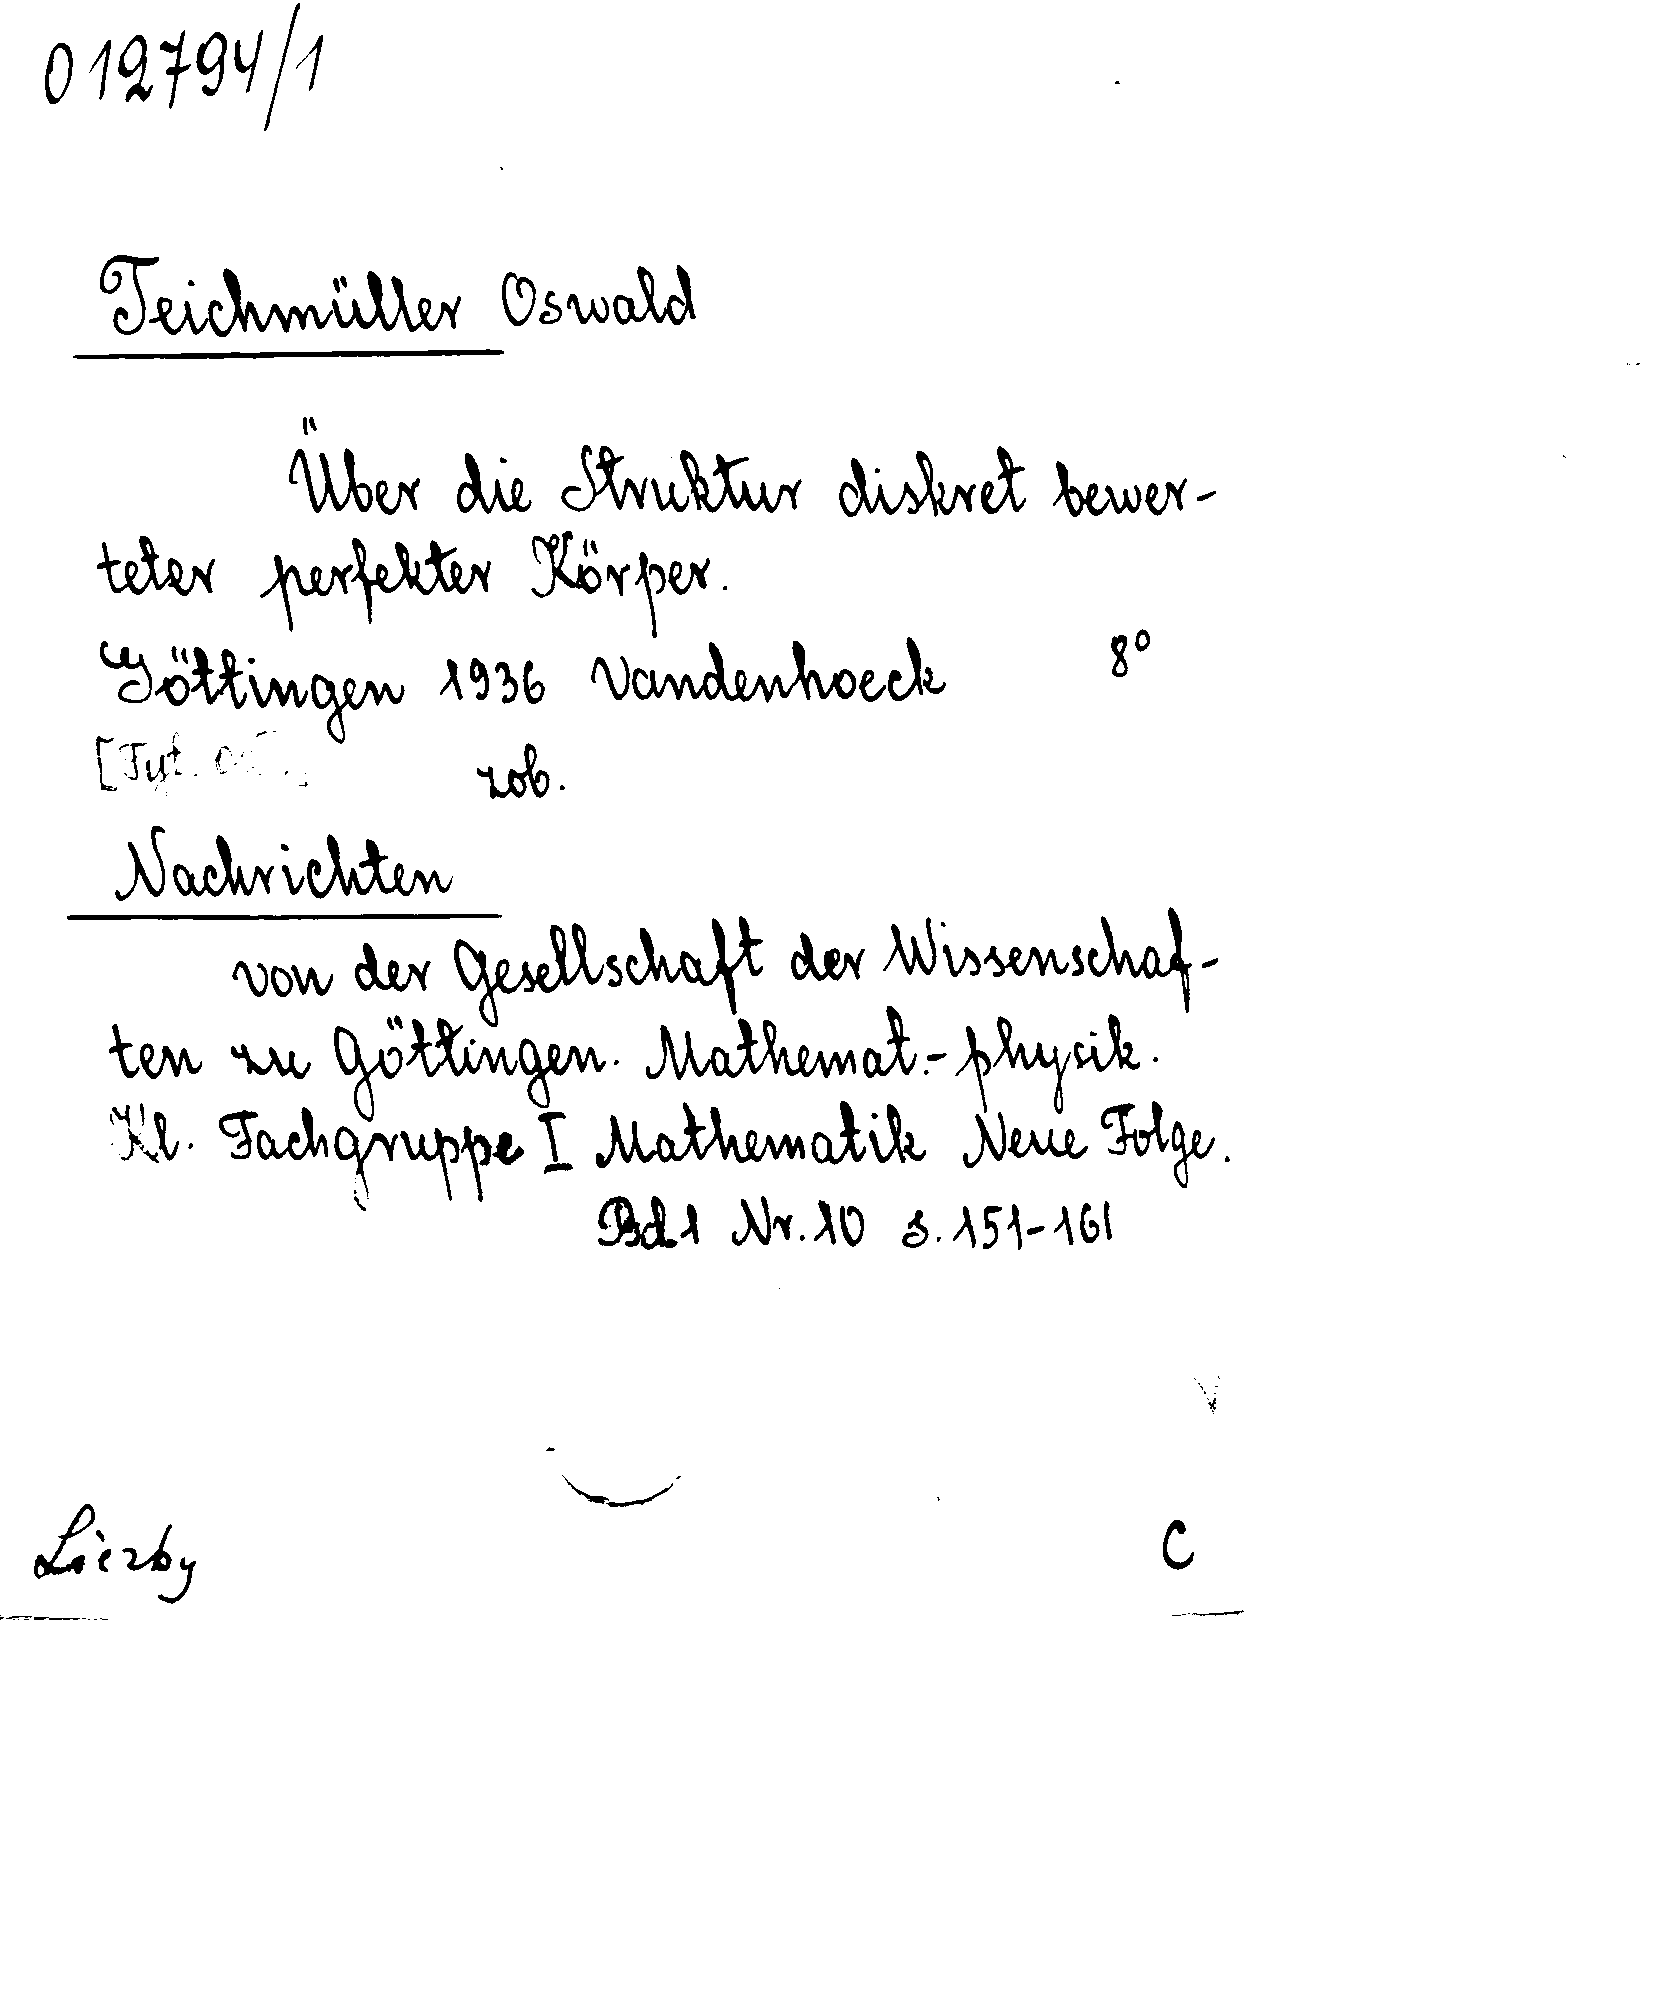 012794/1
Teichmüller Oswald
Über die Struktur diskret bewer-
teter perfekter Körper.
Göttingen 1936 Vandenhoeck 8°
[Tyt. zob.
Nachrichten
von der Gesellschaft der Wissenschaf-
ten zu Göttingen. Mathemat.-physik.
Kl. Fachgruppe I Mathematik Neue Folge.
Bd 1 Nr. 10 s. 151-161
Liczby C